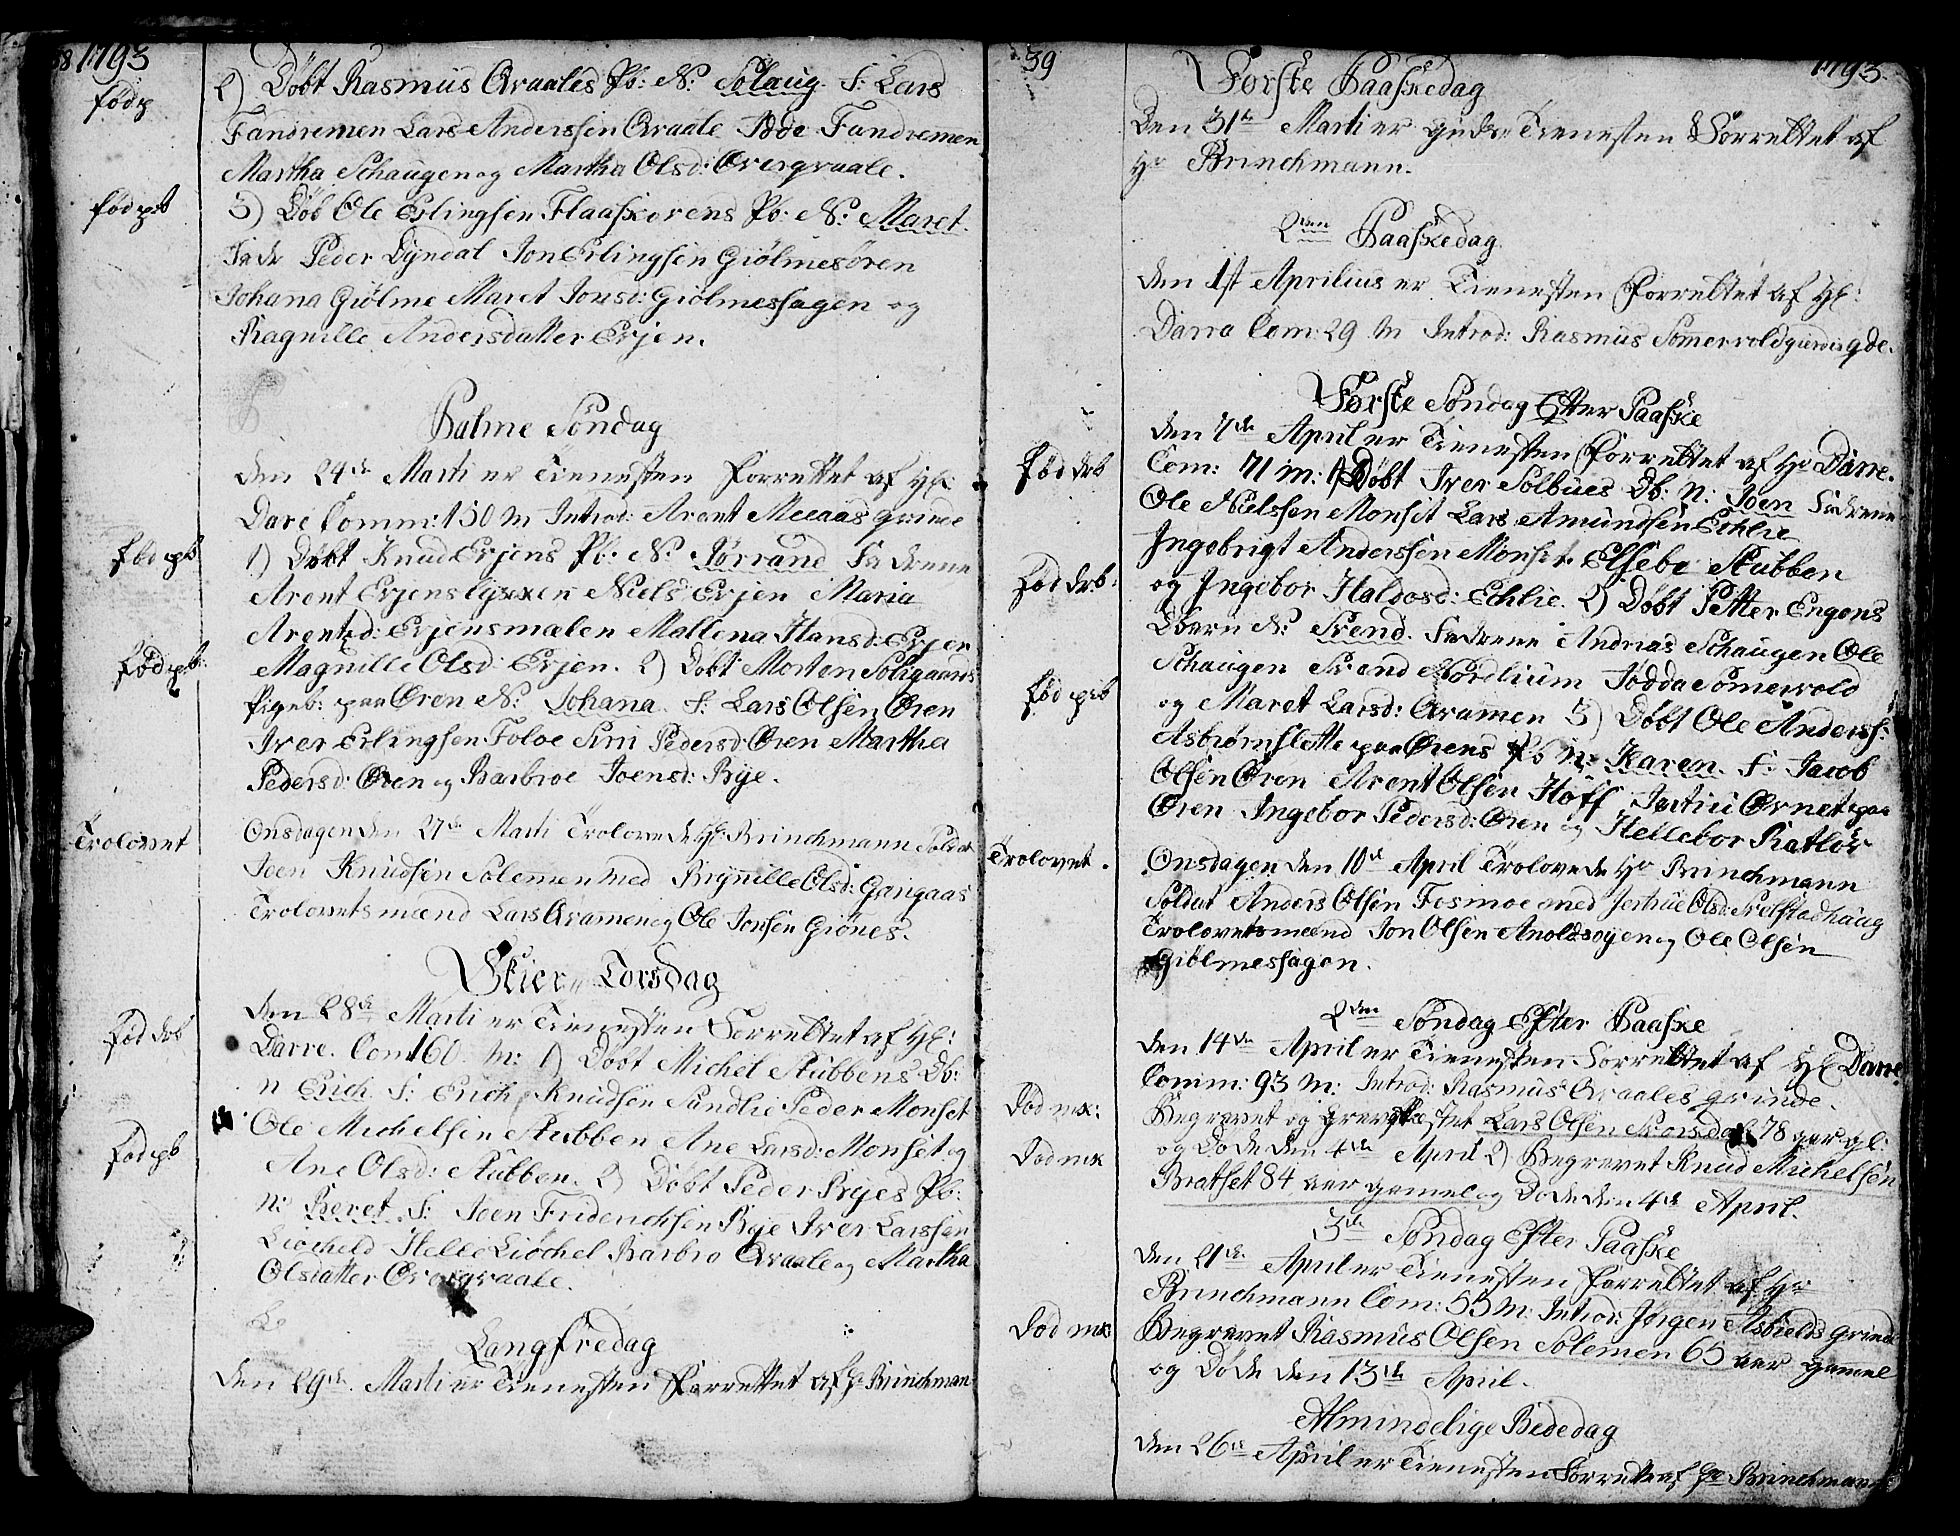 38 1793
fød p
2) Døbt Rasmus Qvaales Pb: N: Solaug. F: Lars
Fandremen Lars Anderssen Qvaale Fandremen
Martha Schaugen og Martha Olsd: Overqvaale.
fød pb
3) Døb Ole Erlingsen Flaaskorens Pb: N: Maret.
Peder Dyndal Jon Erlingsen Giølmesøren
Johana Giølme Maret Jonsd: Giølmeshagen og
Ragnille Andersdatter Evjen.
Palme Søndag
den 24de Marti er Tienesten Forrettet af Hl:
Dare Comm: 150 M Introd: Arent Meeaas grinde
fød pb
1) Døbt Knud Evjens Pb: N: Jørrand Fadrene
Arent Evjenslykken Niels Evjen Maria
Arentsd: Evjensmælen Mallena Hansd: Evjen
fød pb:
Magnille Olsd: Evjen. 2) Døbt Morten Soligaards
Pigeb: paa Øren N: Johana. F: Lars Olsen Øren
Iver Erlingsen Foloe Siri Pedersd: Øren Martha
Pedersd: Øren og Barbroe Joensd: Rye.
Trolovet
Onsdagen den 27de Marti Trolovede Hl: Brinchmann Soldat
Joen Knudsen Solemen med Brynille Olsd: Garigaas
Trolovetsmænd Lars Qvamen og Ole Jonsen Giønes.
Skier Torsdag
den 28de Marti er Tienesten Forrettet af Hl:
fød drb
Darre. Com 160 M: 1) Døbt Michel Stubbens Db:
n Erich F: Erich Knudsen Sandlie Peder Monset
Ole Michelsen Stubben Ane Larsd: Monset og
fød pb
Ane Olsd: Stubben. 2) Døbt Peder Ryes Pb:
n: Beret. F: Joen Friderichsen Rye Iver Larssen
Liøcheld Helle Liøchel Barbro Qvaale og Martha
Olsdatter Overqvaale.
Langfredag
den 29de Marti er Tienesten Forrettet af Hr Brinchman
39 1793
Første Paaskedag
Den 31te Marti er guds Tienesten Forrettet af
Hr Brinchmann.
2den Paaskedag
den 1st Aprilius er Tienesten Forrettet af Hl:
Darra Com: 29 M Introd: Rasmus Somervold
Første Søndag Efter Paaske
den 7de April er Tienesten Forrettet af Hr Darre.
fød drb
Com: 71 m: 1) Døbt Iver Solbues Db: N: Joen Fadrene
Ole Nielssen Monset Lars Amundsen Echlie
Ingebrigt Anderssen Monset Elsebe Stubben
fød drb:
og Ingebor Haldosd: Echlie. 2) Døbt Petter Engens
N: Svend. Fadrene Andreas Schaugen Ole
Schaugen Svend Nordlium Jødda Somervold
fød pb
og Maret Larsd: Qvamen 3) Døbt Ole Anders:
Asbrørnslette paa Ørens Pb N: Karen. F: Jacob
Olsen Øren Arent Olsen Hoff
Øren Ingebor Pedersd: Øren og Hellebor Ratlør
Trolovet.
Onsdagen den 10de April Trolovede Hr Brinchmann
Soldat Anders Olsen Fosmoe med Jertrue Olsd:
Trolovetsmænd Jon Olsen Anoldsøyen og Ole Olsen
Giølmeshagen.
2den Søndag Efter Paaske
den 14de April er Tienesten Forrettet af Hl Darre.
Comm: 93 M: Introd: Rasmus Qvaales grinde.
Død mk:
Begravet og Lars Olsen 78 aar gl:
og Døde den 4de April 2) Begravet Knud Michelsen
Død mk
Bratset 84 aar gamel og Døde den 4de April.
3de Søndag Efter Paaske
den 21de April er Tienesten Forrettet af Hr
Brinchmann Com: 55 M: Introd: Jørgen Asbields grinde
Død mk
Begravet Rasmus Olsen Solemen 65 aar gamel
og Døde den 13de April.
Almindelige Bededag
den 26de April er Tienesten Forrett af Hr Brinchmann